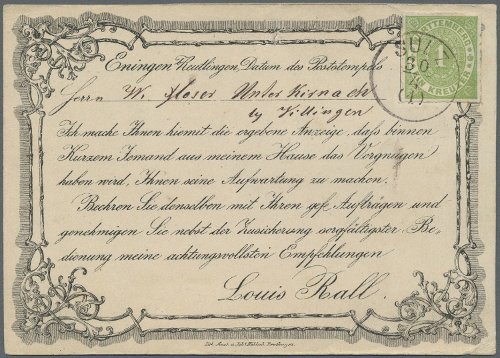 Eningen Reutlingen, Datum des Poststempels
Herrn W. Moser Unterkirnach
by Villingen
Ich mache Ihnen hiemit die ergebene Anzeige, daß binnen
Kurzem Jemand aus meinem Hause das Vergnügen
haben wird, Ihnen seine Aufwartung zu machen.
Beehren Sie denselben mit Ihren gefl. Aufträgen und
genehmigen Sie nebst der Zusicherung sorgfältigster Be-
dienung meine achtungsvollsten Empfehlungen
Louis Rall.
WÜRTTEMBERG
1
KREUZER
SUL
30
4